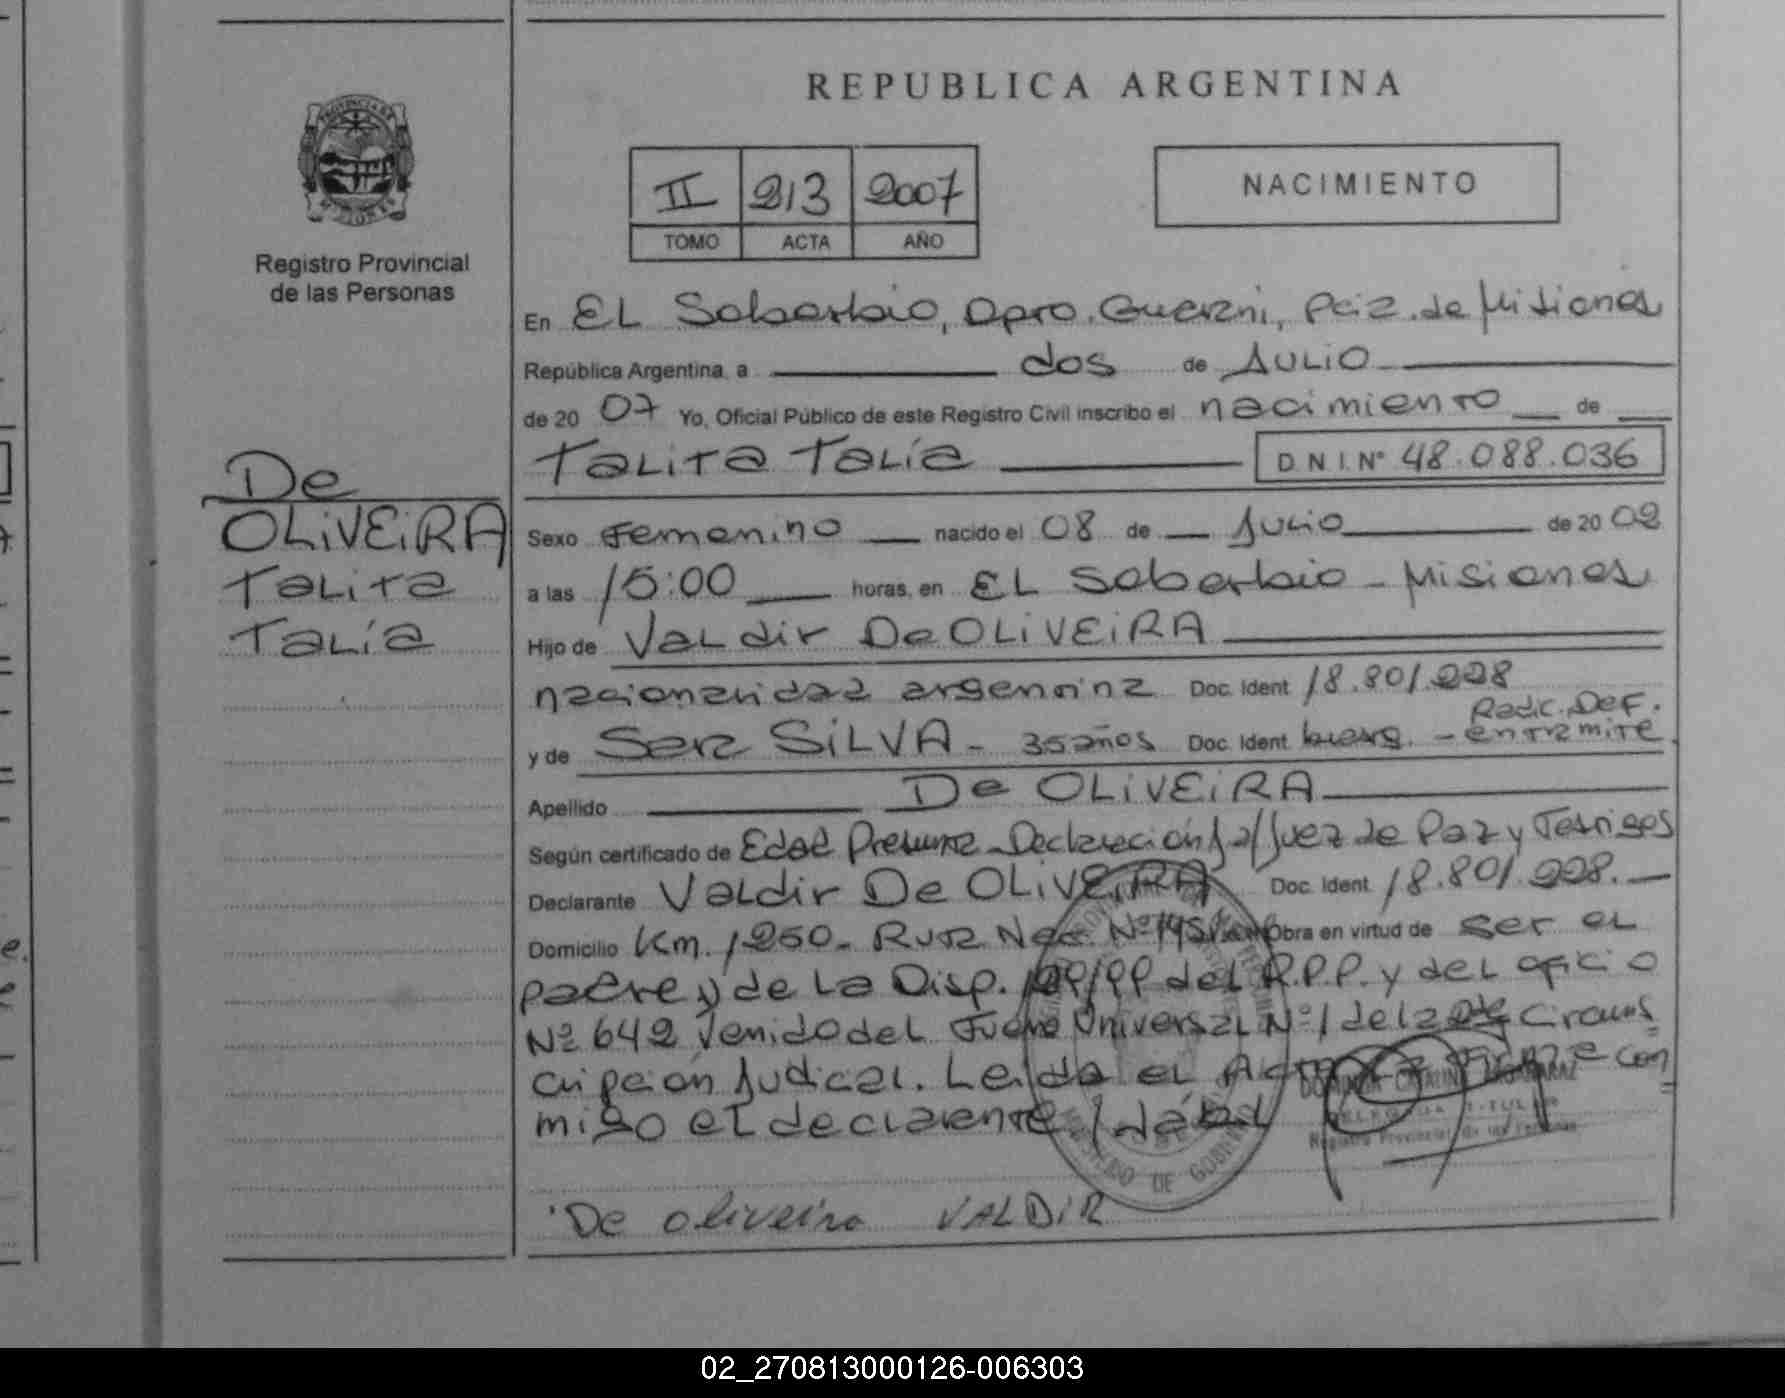 REPUBLICA ARGENTINA
II 213 2007
TOMO ACTA AÑO
NACIMIENTO
Registro Provincial
de las Personas
En EL Soberbio, Dpto. Guarani, Pcia. de Misiones
República Argentina, a dos de JULIO
de 2007 Yo, Oficial Público de este Registro Civil inscribo el nacimiento de
Talita Talía D.N.I. Nº 48.088.036
De
OLiVEiRA
Talita
Talía
Sexo Femenino nacido el 08 de Julio de 2002
a las 15:00 horas, en EL Soberbio - Misiones
Hijo de Valdir De OLiVEiRA
nacionalidad argentina Doc. Ident 18.801.228
y de SILVA - 35 años Doc. Ident - Radic. Def.
en tramite
Apellido De OLiVEiRA
Según certificado de Edad Presunta - Declaración Juez de Paz y Testigos
Declarante Valdir De OLiVEiRA Doc. Ident 18.801.228.
Domicilio Km. 1250 - Ruta Nac. Nº 14 Obra en virtud de ser el
padre y de la Disp. del R.P.P. y del oficio
Nº 642 Venido del Universal Nº 1 de la Circuns
cripción Judicial. Leida el Acta la firma con
migo el declarante
MINISTERIO DE GOBIERNO
Registro Provincial de las Personas
De oliveira VALDIR
02_270813000126-006303